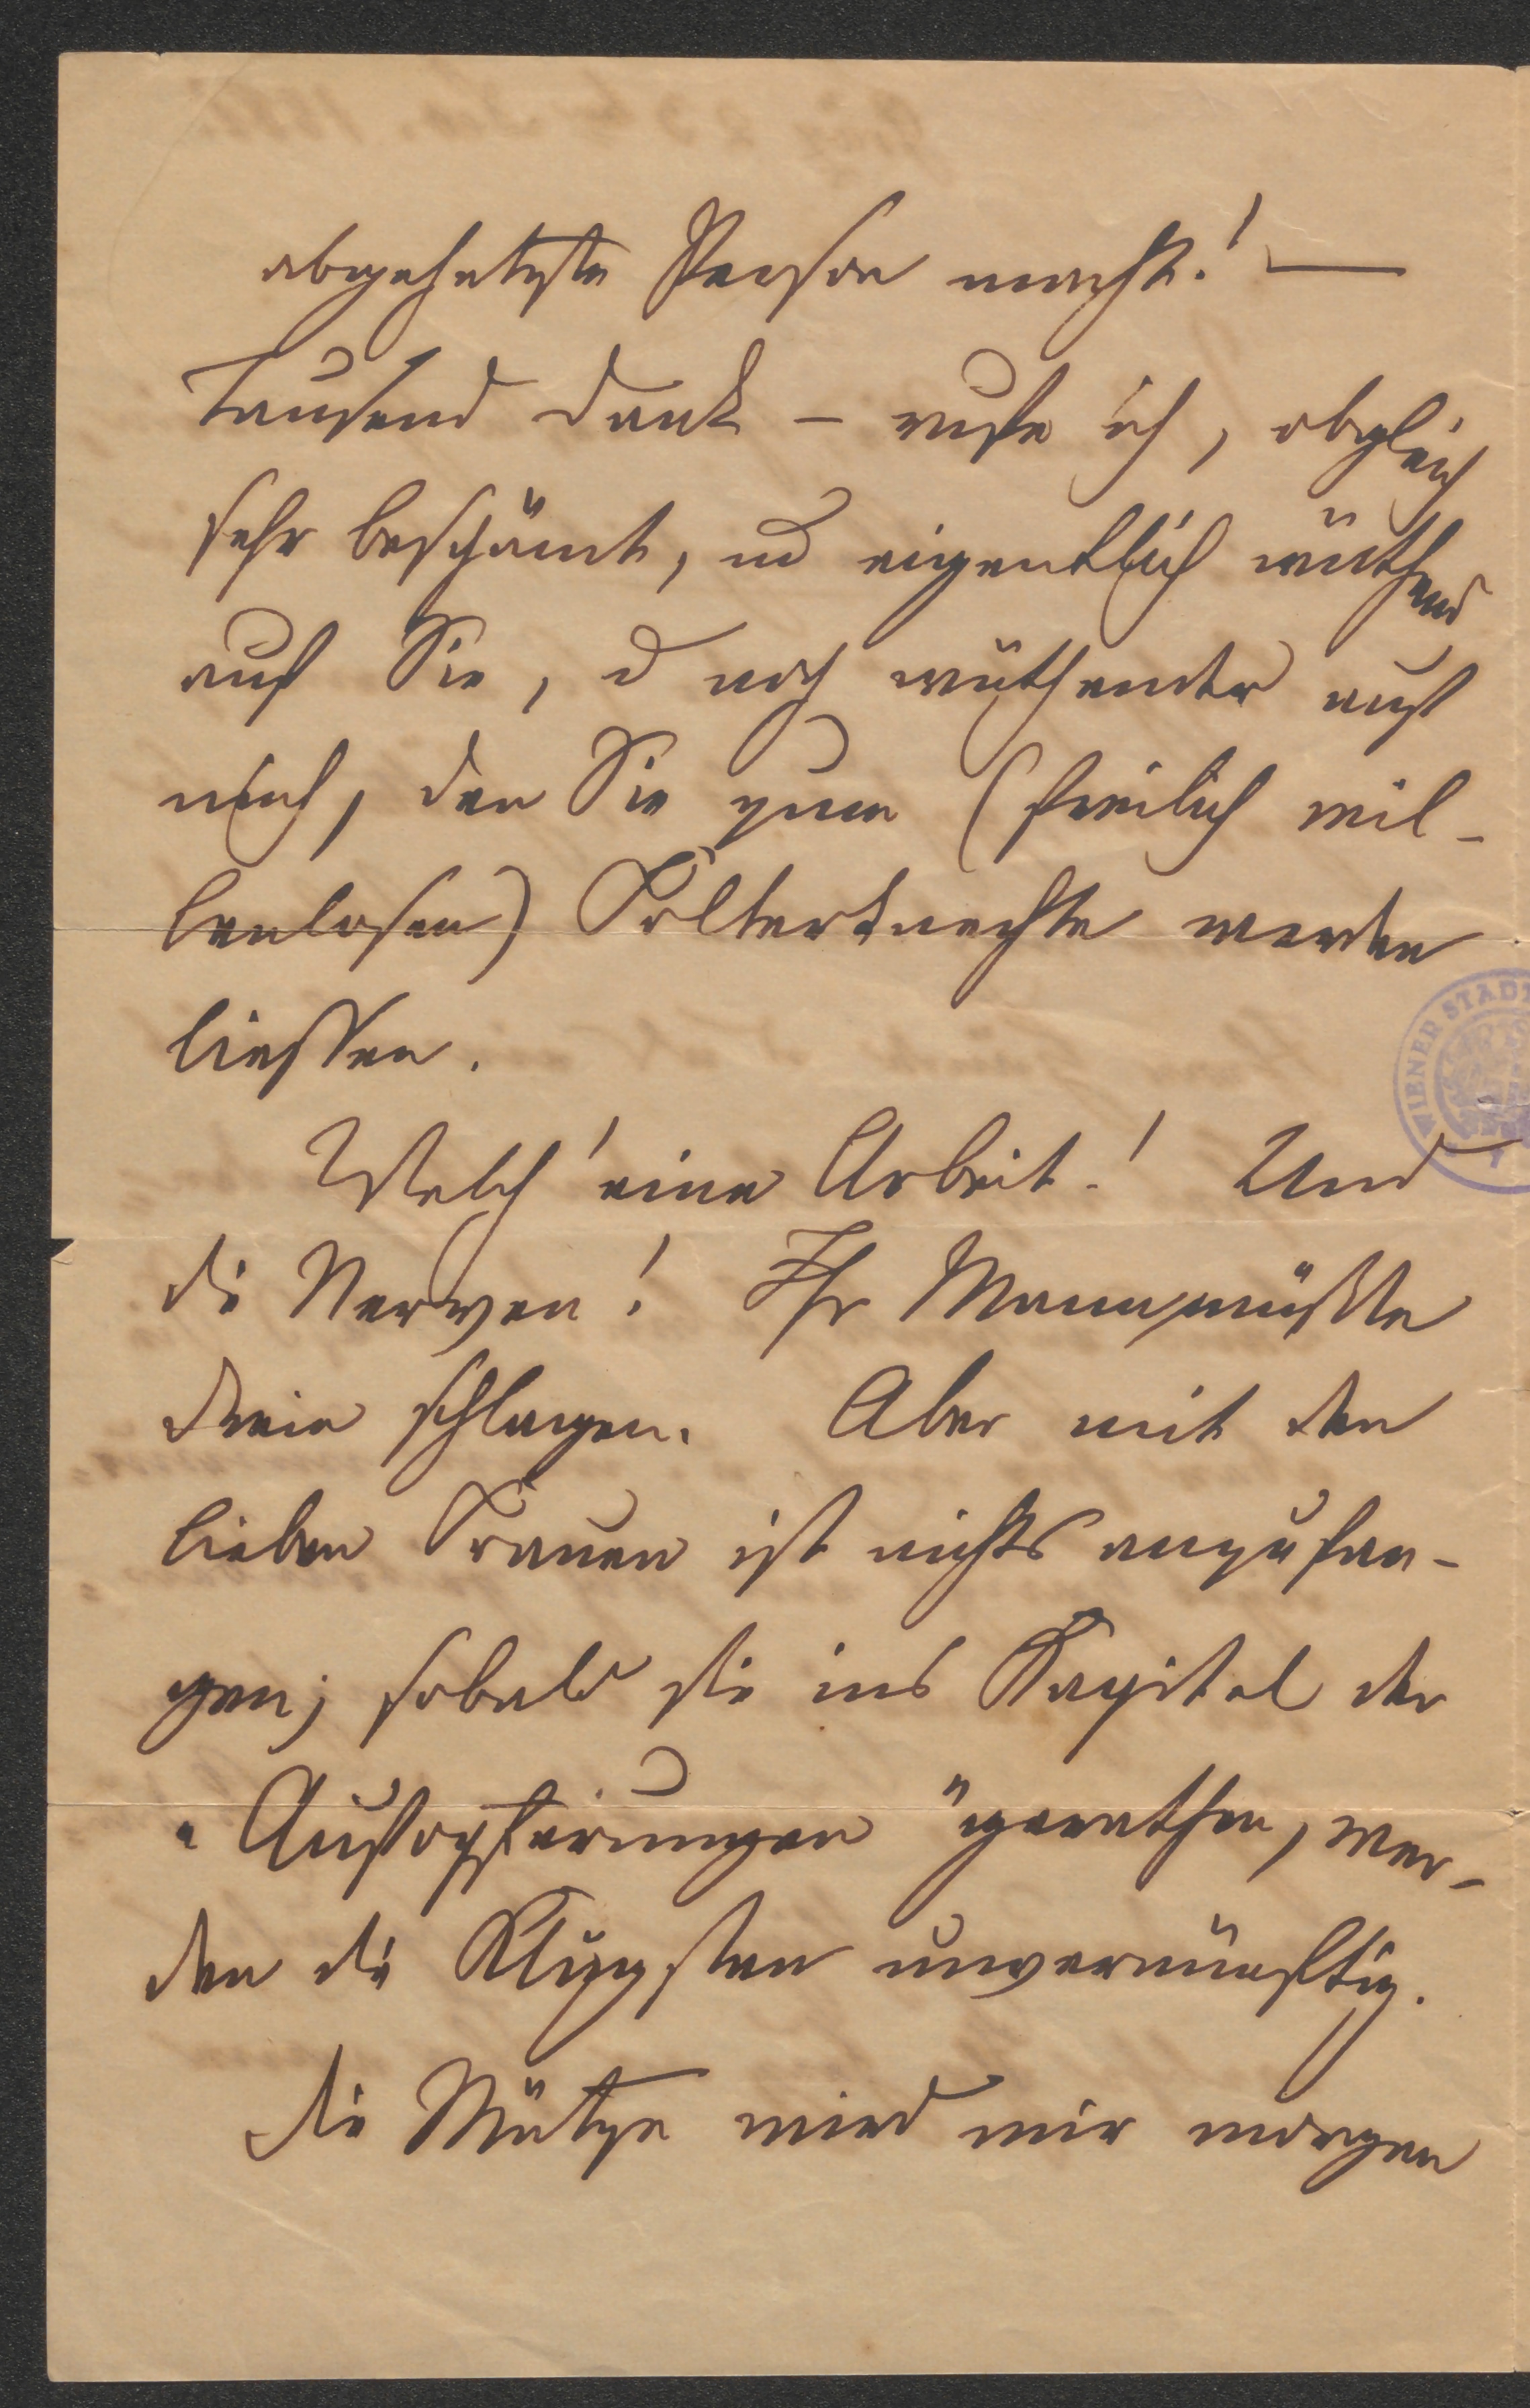 abgehetzte Person macht! —
Tausend Dank – rufe ich, obgleich
sehr beschämt, und eigentlich wüthend
auf Sie, u noch wüthender auf
mich, den Sie zum (freilich wil-
lenlosen) Folterknechte werden
liessen.
Welch' eine Arbeit! Und
die Nerven! Ihr Mann müsste
drein schlagen. Aber mit den
lieben Frauen ist nichts anzufan-
gen; sobald sie ins Kapitel der
"Aufopferungen" gerathen, wer-
den die Klügsten unvernünftig.
Die Mütze wird mir morgen
WIENER STADT